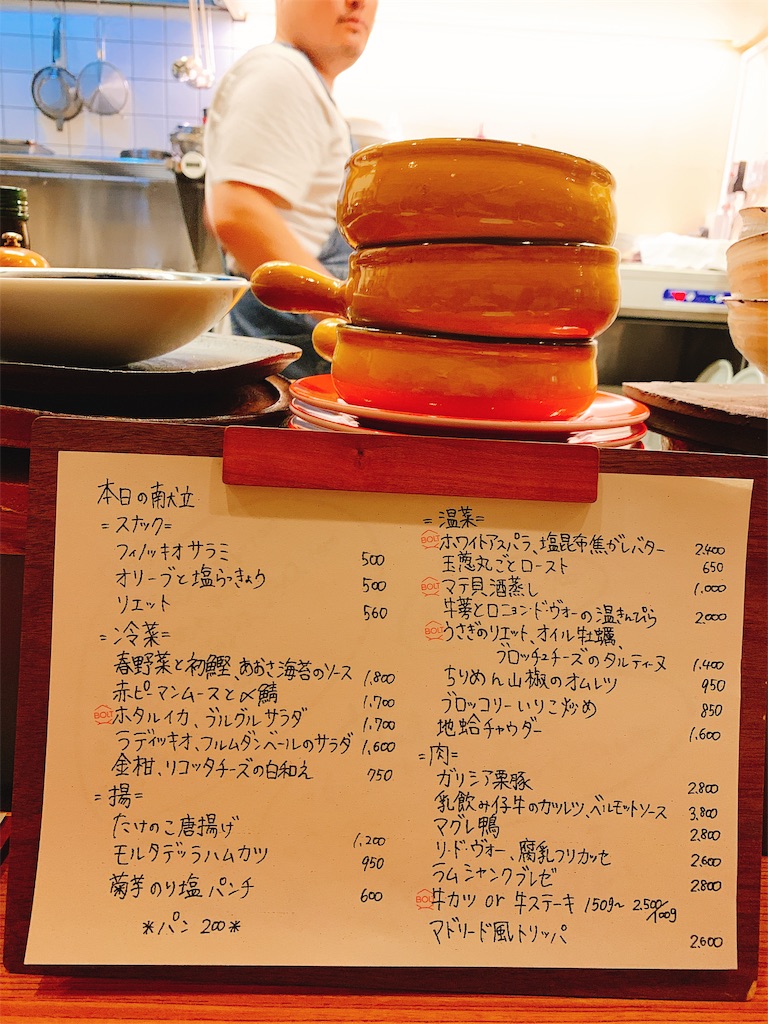 本日の献立
=スナック=
フィノッキオサラミ 500
オリーブと塩らっきょり 500
リエット 560
=冷菜=
春野菜と初鰹、あおさ海苔のソース 1,800
赤ピーマンムースと〆鯖 1,700
BOLT ホタルイカ、ブルグルサラダ 1,700
ラディッキオ、フルムダンベールのサラダ 1,600
金柑、リコッタチーズの白和え 750
=揚=
たけのこ唐揚げ 1,200
モルタデッラハムカツ 950
菊芋のり塩パンチ 600
*パン 200*
=温菜=
BOLT ホワイトアスパラ、塩昆布焦がしバター 2,400
玉葱丸ごとロースト 650
BOLT マテ貝酒蒸し 1,000
牛蒡とロニョン・ド・ヴォーの温きんぴら 2,000
BOLT うさぎのリエット、オイル牡蠣、
ブロッチュチーズのタルティーヌ 1,400
ちりめん山椒のオムレツ 950
ブロッコリーいりこ炒め 850
地蛤チャウダー 1,600
=肉=
ガリシア栗豚 2,800
乳飲み仔牛のカツレツ、ベルモットソース 3,800
マグレ鴨 2,800
リ・ド・ヴォー、腐乳フリカッセ 2,600
ラムシャンクブレゼ 2,800
BOLT 牛カツ or 牛ステーキ 150g〜 2,500/100g
マドリード風トリッパ 2,600